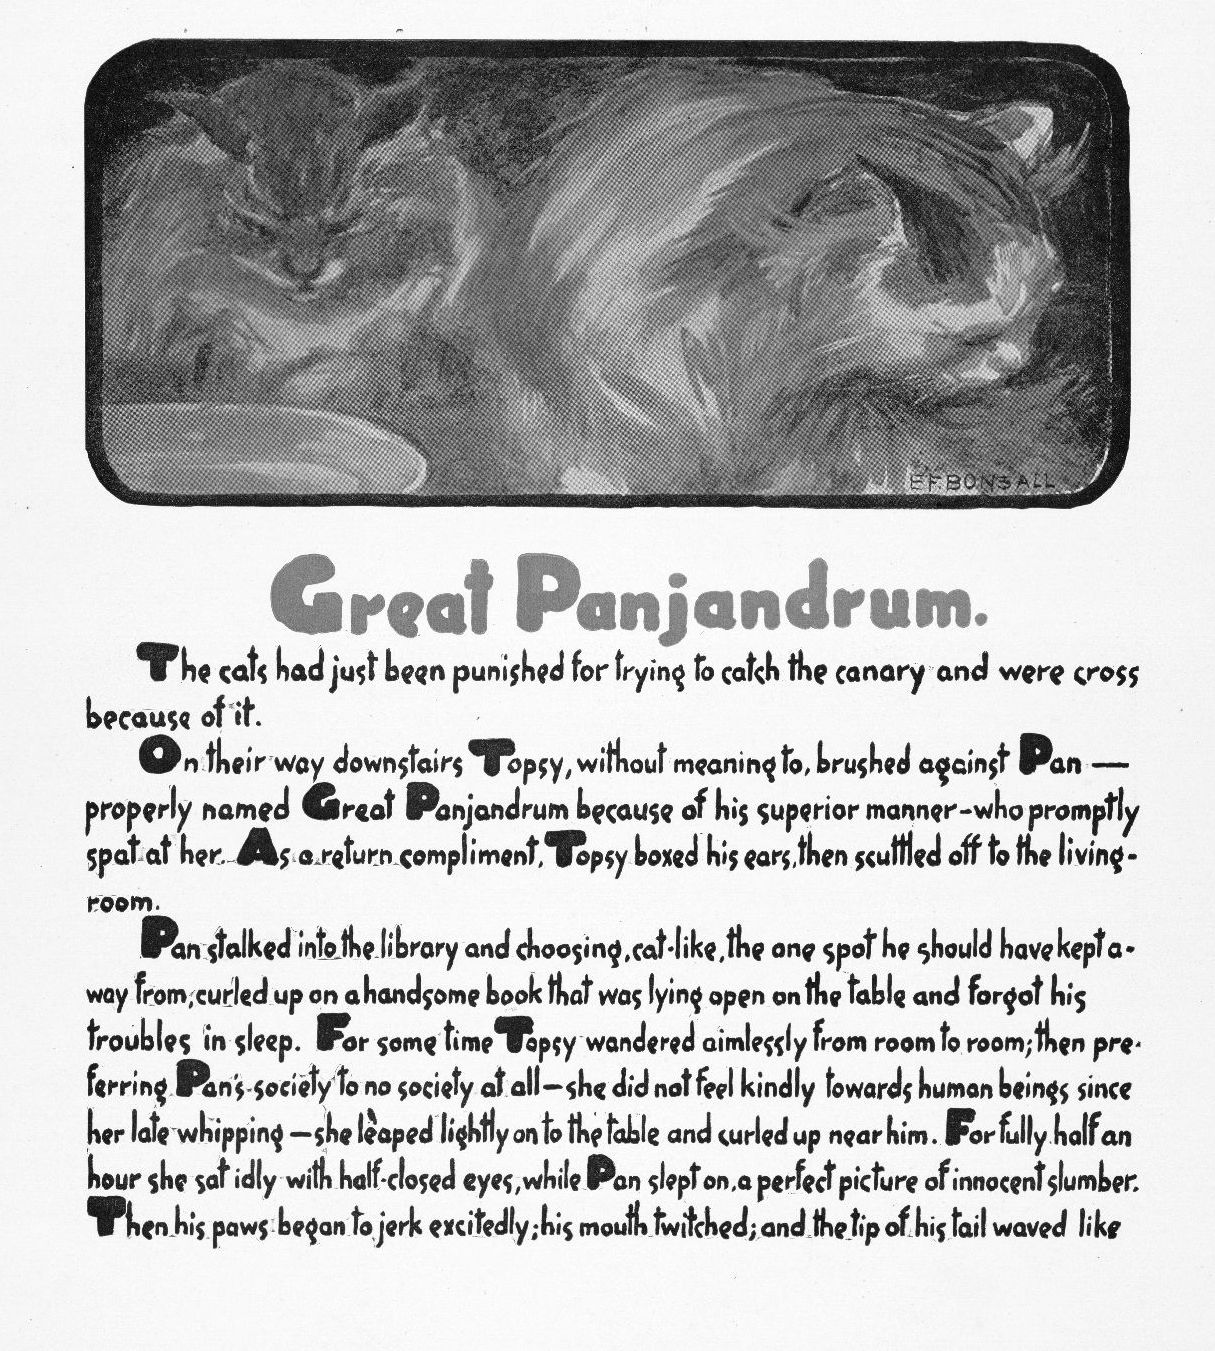 EFBONSALL
Great Panjandrum.
The cats had just been punished for trying to catch the canary and were cross
because of it.
On their way downstairs Topsy, without meaning to, brushed against Pan —
properly named Great Panjandrum because of his superior manner-who promptly
spat at her. As a return compliment, Topsy boxed his ears, then scuttled off to the living-
room.
Pan stalked into the library and choosing, cat-like, the one spot he should have kept a-
way from, curled up on a handsome book that was lying open on the table and forgot his
troubles in sleep. For some time Topsy wandered aimlessly from room to room; then pre-
ferring Pan's society to no society at all—she did not feel kindly towards human beings since
her late whipping —she leaped lightly on to the table and curled up near him. For fully half an
hour she sat idly with half-closed eyes, while Pan slept on, a perfect picture of innocent slumber.
Then his paws began to jerk excitedly; his mouth twitched; and the tip of his tail waved like